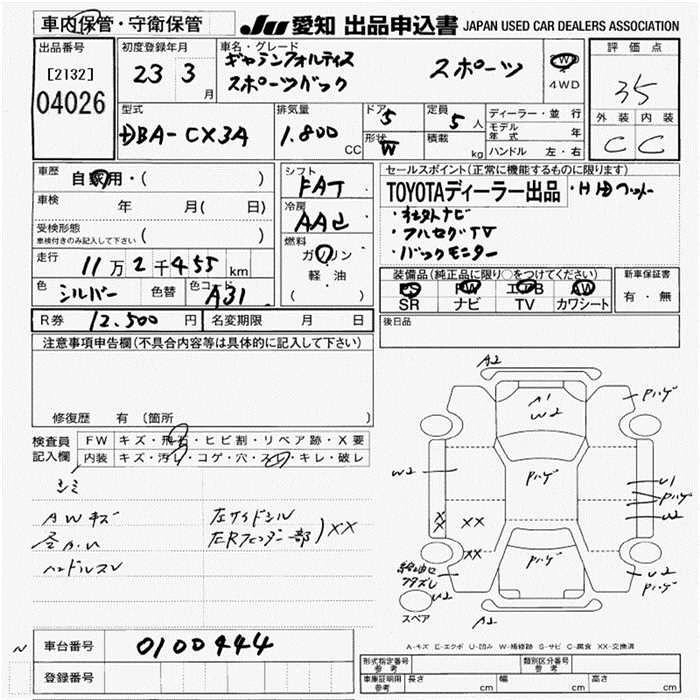 車内保管・守衛保管
JU 愛知 出品申込書 JAPAN USED CAR DEALERS ASSOCIATION
出品番号
[2132]
04026
初度登録年月
23 3月
車名・グレード
ギャランフォルティス
スポーツバック スポーツ
4WD
評価点
35
外装 内装
C C
型式
DBA-CX3A
排気量
1.800 CC
ドア 5
形状 W
定員 5人
積載 kg
ディーラー・並行
モデル年式 年
ハンドル 左・右
車歴 自家用・( )
車検 年 月( 日)
受検形態
車検付きのみ記入して下さい ( )
走行 11万2千455km
色 シルバー 色替 色コード A31
シフト FAT
冷房 AAC
燃料
ガソリン
軽・油
( )
セールスポイント(正常に機能するものに限ります)
TOYOTAディーラー出品
・社外ナビ
・フルセグTV
・バックモニター
装備品(純正品に限り○をつけてください)
PS PW エアB AW
SR ナビ TV カワシート
新車保証書
有・無
R券 12.500円 名変期限 月 日
後日品
注意事項申告欄(不具合内容等は具体的に記入して下さい)
修復歴 有(箇所 )
検査員記入欄
FW キズ・飛石・ヒビ割・リペア跡・X要
内装 キズ・汚レ・コゲ・穴・スレ・キレ・破レ
シミ
AWキズ
ハンドルスレ
左サイドシル
左Rフェンダー部 ) XX
A2
A1
W2
Pハゲ
W2
Pハゲ
U1
Pハゲ
W2
X
X
XX
XX
Pハゲ
給油口
フタズレ
U2
U2
Pハゲ
スペア
A2
A-キズ E-エクボ U-凹み W-補修跡 S-サビ C-腐食 XX-交換済
車台番号 0100444
登録番号
形式指定番号 参考
類別区分番号 参考
車庫証明用 参考 長さ cm 幅 cm 高さ cm